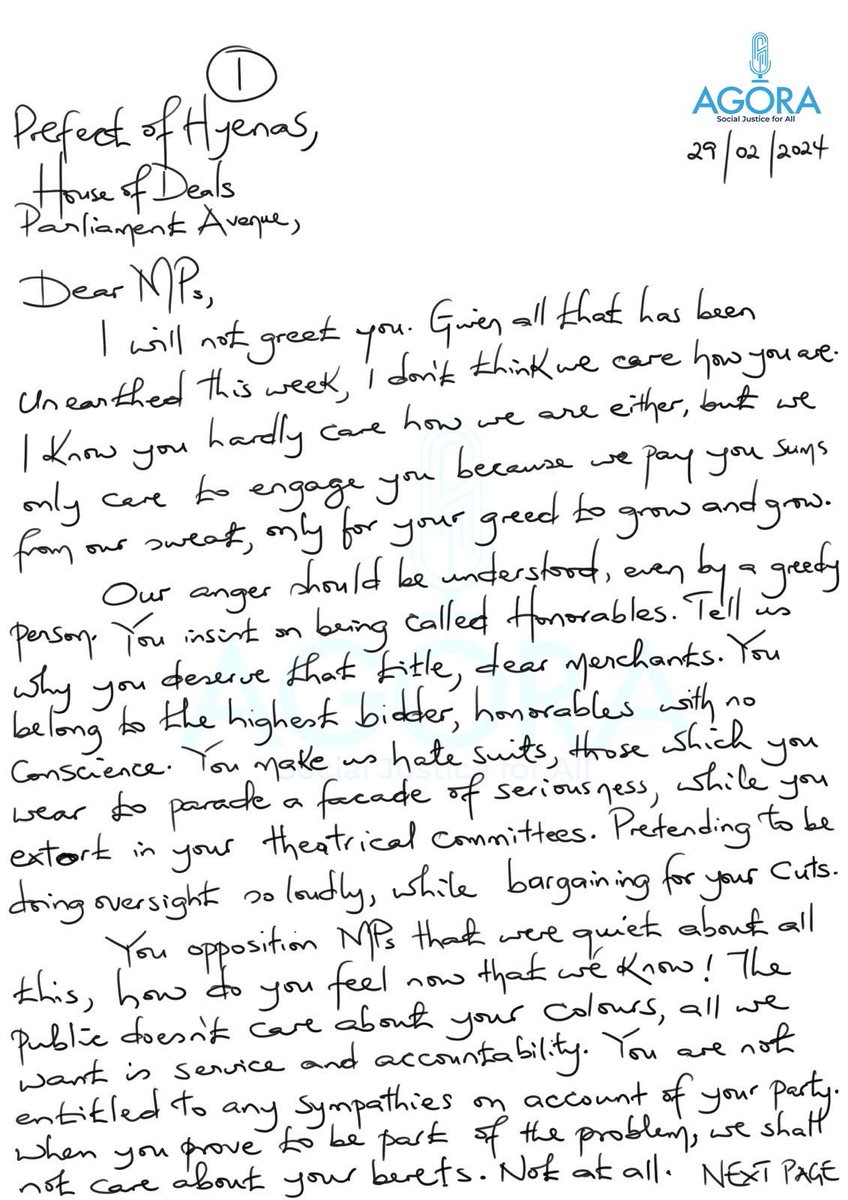 1
AGORA
Social Justice for All
29/02/2024
Prefect of Hyenas,
House of Deals
Parliament Avenue,
Dear MPs,
I will not greet you. Given all that has been
unearthed this week, I don't think we care how you are.
I know you hardly care how we are either, but we
only care to engage you because we pay you sums
from our sweat, only for your greed to grow and grow.
Our anger should be understood, even by a greedy
person. You insist on being called Honorables. Tell us
why you deserve that title, dear merchants. You
belong to the highest bidder, honorables with no
conscience. You make us hate suits, those which you
wear to parade a facade of seriousness, while you
extort in your theatrical committees. Pretending to be
doing oversight so loudly, while bargaining for your cuts.
You opposition MPs that were quiet about all
this, how do you feel now that we know! The
public doesn't care about your colours, all we
want is service and accountability. You are not
entitled to any sympathies on account of your party.
When you prove to be part of the problem, we shall
not care about your berets. Not at all. NEXT PAGE
AGORA
Social Justice for All